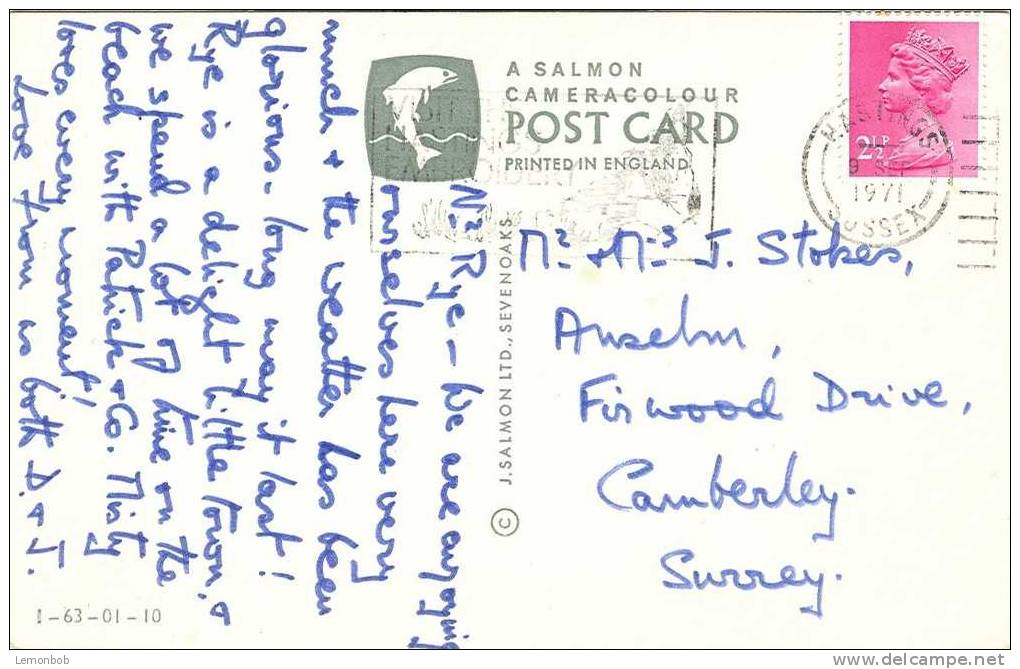 A SALMON
CAMERACOLOUR
POST CARD
PRINTED IN ENGLAND
Nr. Rye – We are enjoying
ourselves here very
much & the weather has been
glorious – long may it last!
Rye is a delightful little town, &
we spend a lot of time on the
beach with Patrick & Co. Misty
loves every moment!
Love from us both D. & J.
© J. SALMON LTD., SEVENOAKS
Mr. & Mrs J. Stokes,
Anselm,
Firwood Drive,
Camberley.
Surrey.
2½P
HASTINGS
1971
SUSSEX
1-63-01-10
Lemonbob
www.delcampe.net